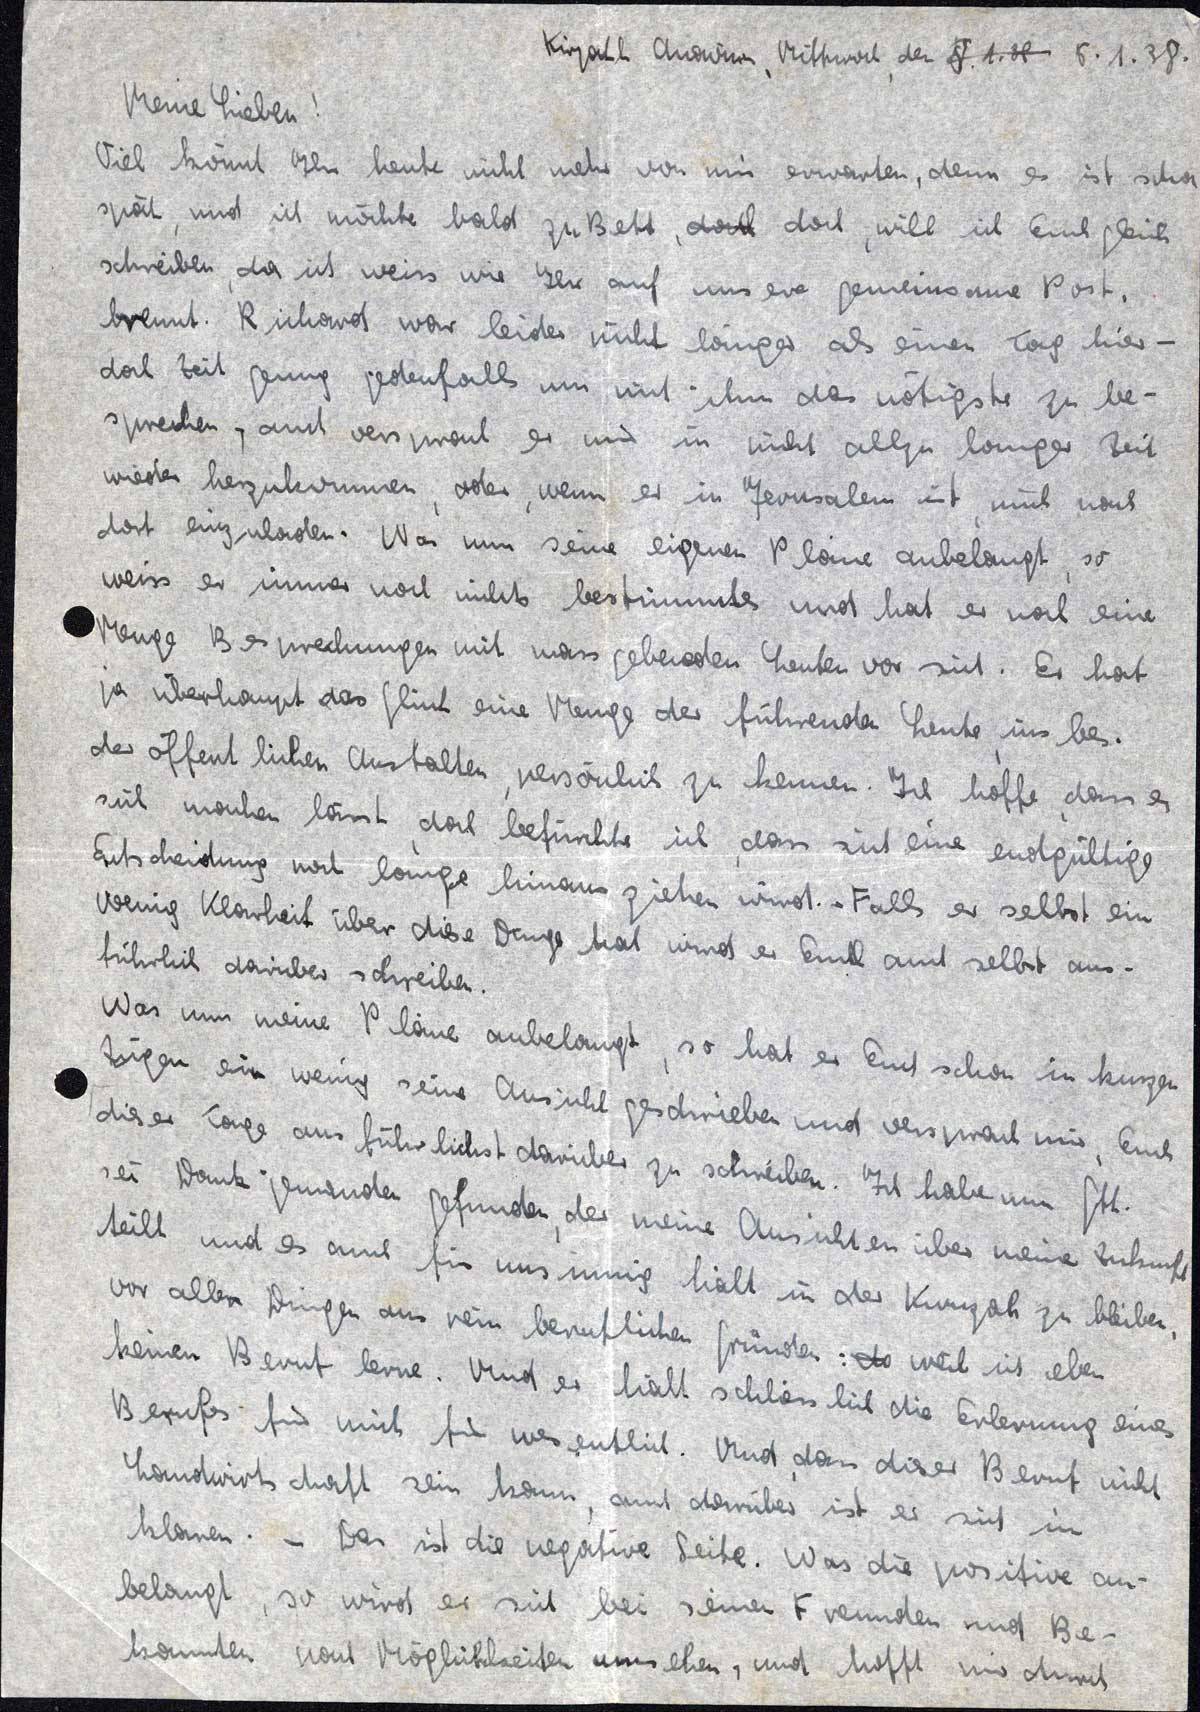 Kirjath Anavim, Mittwoch, den 5. 1. 38.
Meine Lieben!
Viel könnt Ihr heute nicht mehr von mir erwarten, denn es ist schon
spät, und ich möchte bald zu Bett, doch doch, will ich Euch gleich
schreiben, da ich weiss wie Ihr auf unsere gemeinsame Post,
brennt. Richard war leider nicht länger als einen Tag hier –
doch Zeit genug jedenfalls um mit ihm das nötigste zu be-
sprechen, auch versprach er mir in nicht allzu langer Zeit
wieder herzukommen, oder, wenn er in Jerusalem ist, mich nach
dort einzuladen. Was nun seine eigenen Pläne anbelangt, so
weiss er immer noch nichts bestimmtes und hat er noch eine
Menge Besprechungen mit massgebenden Leuten vor sich. Er hat
ja überhaupt das Glück eine Menge der führenden Leute, insbes.
der öffentlichen Anstalten, persönlich zu kennen. Ich hoffe, dass es
sich machen lässt, doch befürchte ich, dass sich eine endgültige
Entscheidung noch lange hinaus ziehen wird. – Falls er selbst ein
wenig Klarheit über diese Dinge hat wird er Euch auch selbst aus-
führlich darüber schreiben.
Was nun meine Pläne anbelangt, so hat er Euch schon in kurzen
Zügen ein wenig seine Ansicht geschrieben und versprach mir, Euch
dieser Tage ausführlichst darüber zu schreiben. Ich habe nun Gtt.
sei Dank jemanden gefunden, der meine Ansichten über meine Zukunft
teilt und es auch für unsinnig hält in der Kwuzah zu bleiben,
vor allen Dingen aus rein beruflichen Gründen: da weil ich eben
keinen Beruf lerne. Und er hält schliesslich die Erlernung eines
Berufes für mich für wesentlich. Und, dass dieser Beruf nicht
Landwirtschaft sein kann, auch darüber ist er sich im
klaren. – Das ist die negative Seite. Was die positive an-
belangt, so wird er sich bei seinen Freunden und Be-
kannten nach Möglichkeiten umsehen, und hofft mir durch